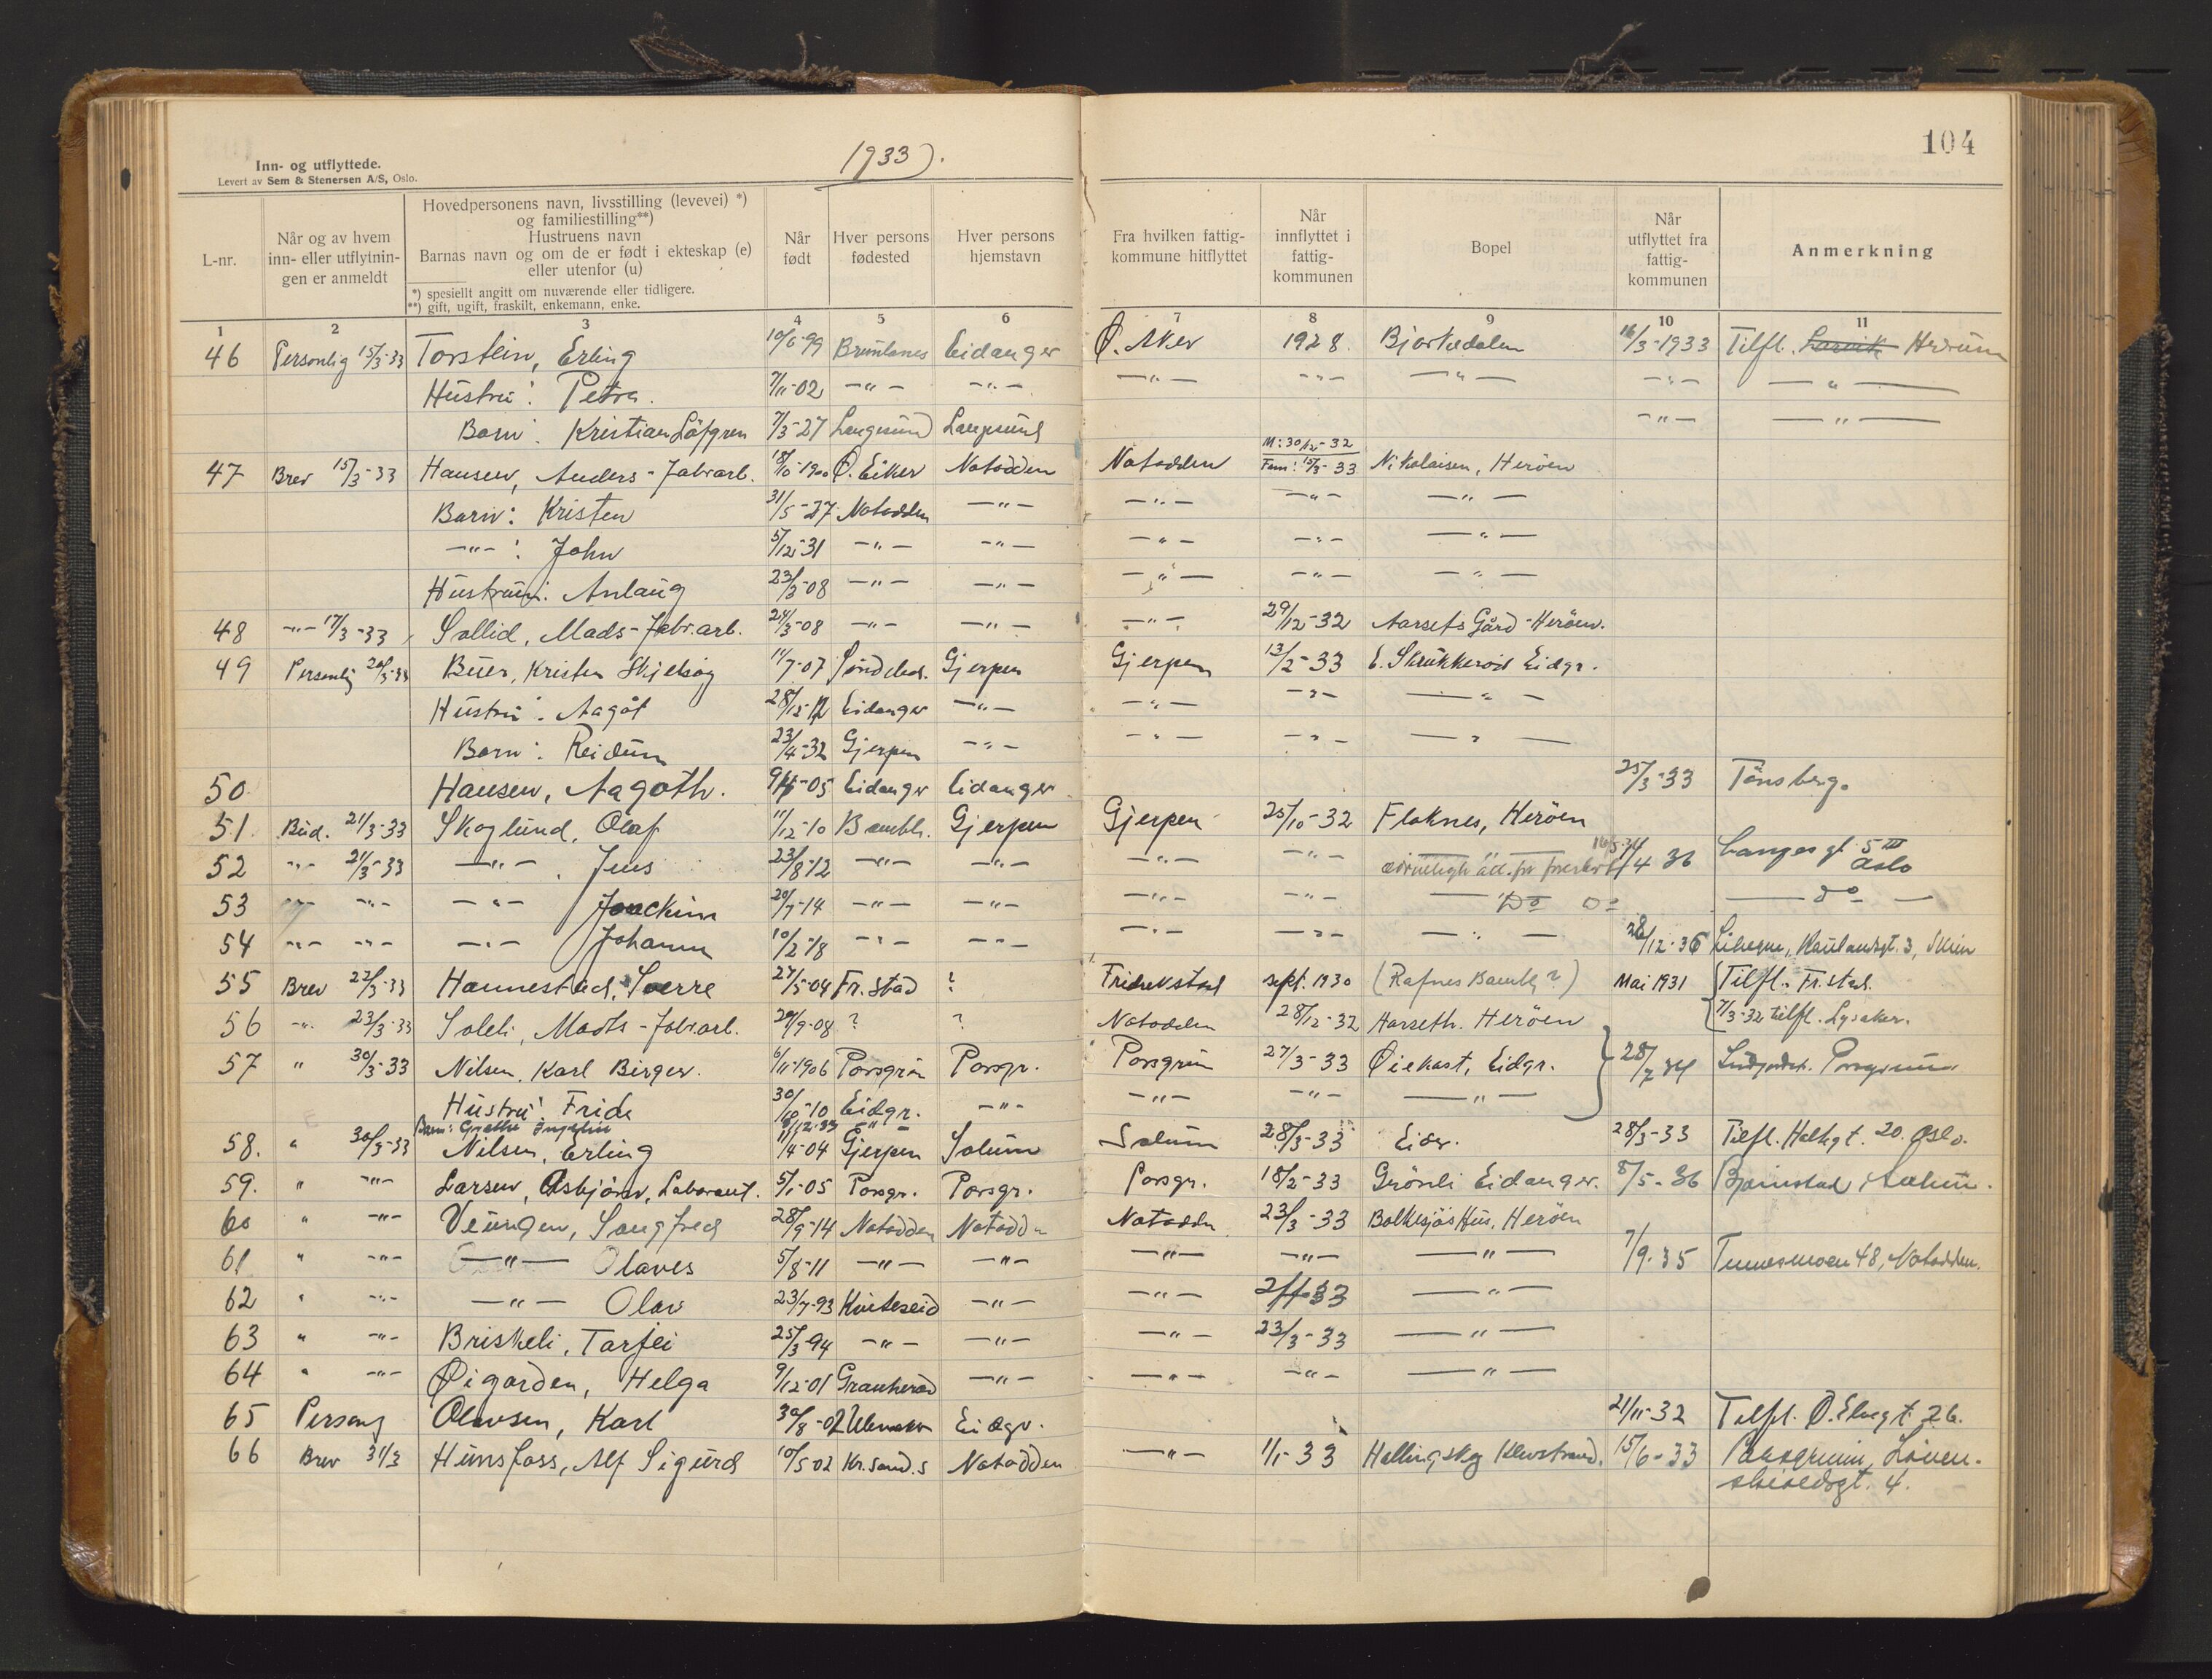 104
1933.
Inn- og utflyttede.
Levert av Sem & Stenersen A/S, Oslo.
L-nr.
Når og av hvem
inn- eller utflytnin-
gen er anmeldt
Hovedpersonens navn, livsstilling (levevei) *)
og familiestilling**)
Hustruens navn
Barnas navn og om de er født i ekteskap (e)
eller utenfor (u)
*) spesiellt angitt om nuværende eller tidligere.
**) gift, ugift, fraskilt, enkemann, enke.
Når
født
Hver persons
fødested
Hver persons
hjemstavn
Fra hvilken fattig-
kommune hitflyttet
Når
innflyttet i
fattig-
kommunen
Bopel
Når
utflyttet fra
fattig-
kommunen
Anmerkning
1 2 3 4 5 6 7 8 9 10 11
46 Personlig 15/3-33 Torstein, Erling 10/6-99 Brunlanes Eidanger Ø. Aker 1928. Bjørkedalen 16/3-1933 Tilfl. Larvik Hedrum
Hustru: Petra. 7/11-02 -"- -"- -"- -"- -"- -"- -"-
Barn: Kristian Löfgren 7/3-27 Langesund Langesund -"- -"-
47 Brev 15/3-33 Hansen, Anders - Fabr.arb. 18/10-1900 Ø. Eiker Notodden Notodden M: 30/12-32 Fam: 15/3-33 Nikolaisen, Herøen
Barn: Kristen 31/5-27 Notodden -"- -"- -"- -"-
-"-: John 5/12-31 -"- -"- -"- -"- -"-
Hustru: Anlaug 23/3-08 -"- -"- -"- -"- -"-
48 -"- 17/3-33 Sollid, Mads - Fabr.arb. 24/3-08 -"- -"- -"- 29/12-32 Aarsets Gård - Herøen.
49 Personlig 20/3-33 Buer, Kristen Skjelsøg 11/7-07 Sönd Gjerpen Gjerpen 13/2-33 E. Skrukkerød Eidgr.
Hustru: Aagöt 28/12-12 Eidanger -"- -"- -"- -"-
Barn: Reidun 23/4-32 Gjerpen -"- -"- -"- -"-
50 Hansen, Aagoth. 9/4-05 Eidanger Eidanger 25/3-33 Tönsberg.
51. Bud. 21/3-33 Skoglund, Olaf 11/12-10 Bambl. Gjerpen Gjerpen 25/10-32 Floknes, Herøen
52 -"- 21/3-33 -"-, Jens 23/8-12 -"- -"- -"- -"- -"- 1/4 36 Langes gt 5 III Oslo
53 -"- -"- -"- Joackim 20/7-14 -"- -"- -"- -"- Do Do do
54 -"- -"- -"- Johann 10/2-18 -"- -"- -"- -"- -"- 28/12-36 Kaulandsgt. 3, Skien
55 Brev 22/3-33 Hannestad, Sverre 27/5-04 Fr.stad ? Fridrekstad sept. 1930 (Rafnes Bambl?) Mai 1931 Tilfl. Fr.stad.
7/3-32 tilfl. Lysaker.
56 -"- 23/3-33 Soleli, Mads - Fabr.arb. 29/9-08 ? ? Notodden 28/12-32 Aarseth. Herøen
57 " 30/3-33 Nilsen, Karl Birger. 6/11-1906 Porsgrun Porsgr. Porsgrun 27/3-33 Øiekast, Eidgr. 28/7 34 Porsgrunn
Hustru: Frida 30/10-10 Eidgr. -"- -"- -"- -"-
Barn: Grethe 8/12.33 -"-
58. " 30/3-33 Nilsen, Erling 11/4-04 Gjerpen Solum Solum 28/3-33 Eidgr. 28/3-33 Tilfl. Helhgt. 20. Oslo.
59. " -"- Larsen, Asbjörn, Laborant. 5/1-05 Porsgr. Porsgr. Porsgr. 18/2-33 Grönli Eidanger. 8/5-36 Bjørnstad i Solum.
60 " -"- Veungen, Sangfred 28/9-14 Notodden Notodden Notodden 23/3-33 Bolkesjös Hus, Herøen
61 " -"- -"- Olaves 5/8-11 -"- -"- -"- -"- -"- 7/9.35 Tinnesmoen 48, Notodden.
62 " -"- -"- Olav 23/7-93 Kviteseid -"- -"- -"-
63 " -"- Briskeli, Tarjei 25/3 94 -"- -"- -"- 23/3-33 -"-
64 " -"- Øigarden, Helga 9/12-01 Granherad -"- -"- -"- -"-
65 Personlig Olavsen, Karl 30/8-02 Eidgr. 21/11-32 Tilfl. Ø. Elvegt 26.
66 Brev 31/3 Hunsfoss, Alf Sigurd 10/5 02 Kr.sand.S Notodden -"- 1/1-33 Hellingskog Klevstrand. 15/6-33 Porsgrunn, Löven-
skioldsgt. 4.